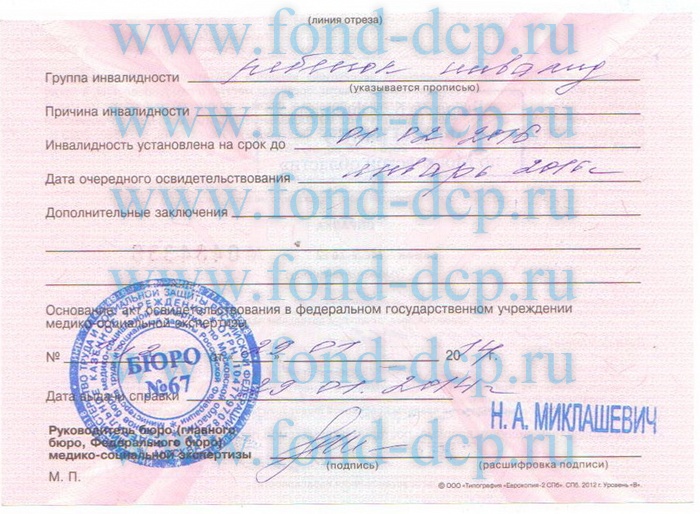 www.fond-dcp.ru
(линия отреза)
Группа инвалидности ребенок инвалид
(указывается прописью)
www.fond-dcp.ru
Причина инвалидности
Инвалидность установлена на срок до 01.02.2016
Дата очередного освидетельствования январь 2016 г
www.fond-dcp.ru
Дополнительные заключения
www.fond-dcp.ru
Основание: акт освидетельствования в федеральном государственном учреждении
медико-социальной экспертизы
№ от 29.01 2014 г.
www.fond-dcp.ru
БЮРО
№67
Дата выдачи справки 29.01.2014г
Н. А. МИКЛАШЕВИЧ
Руководитель бюро (главного
бюро, Федерального бюро)
медико-социальной экспертизы
www.fond-dcp.ru
(подпись) (расшифровка подписи)
М. П.
© ООО «Типография «Еврокопия-2 СПб». СПб. 2012 г. Уровень «В».